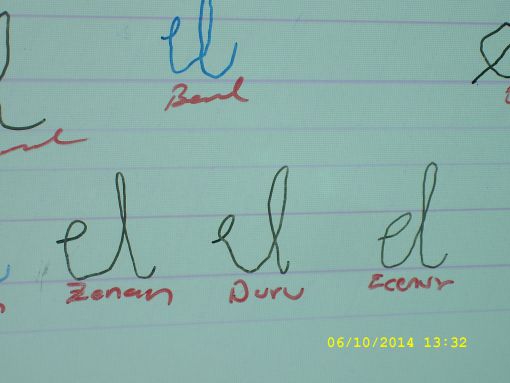 el
el el el
Zenan Duru Ecenur
06/10/2014 13:32